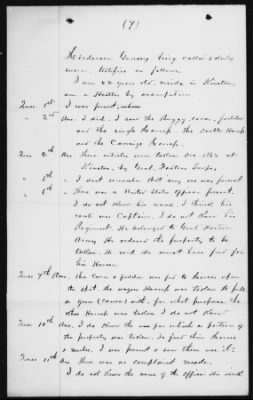 (7)
Henderson Gooding, being called & duly
sworn, testifies as follows
I am 44 years old, reside in Kinston,
am a Hostler by occupation.
Ques 1st I was present, when
" 2nd Ans. I did. I saw the Buggy, corn, fodder
and the single Harness the double Harness
and the Carriage Harness.
Ques 3d Ans These articles were taken Dec. 1862 at
Kinston, by Genl. Fosters troops.
" 5th " I dont remember that any one was present
" 6th " There was a United States officer present.
I do not know his name. I think his
rank was Captain. I do not know his
Regiment. He belonged to Genl Fosters
Army. He ordered the property to be
taken. He said He must have feed for
his Horses.
Ques 7th Ans. The Corn & fodder was fed to horses upon
the spot. the wagon Harness was taken to pull
a gun (canon) with. for what purpose the
other Harness was taken I do not know
Ques 10th Ans. I do know the use for which a portion of
the property was taken. To feed their Horses
& mules. I was present & saw them use it.
Ques 11th Ans There was no complaint made.
I do not know the name of the officer